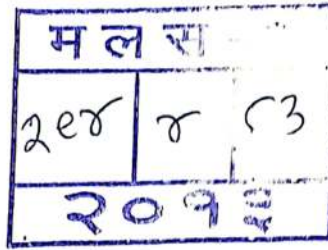 मलस
२९४ ४ ८३
२०१३